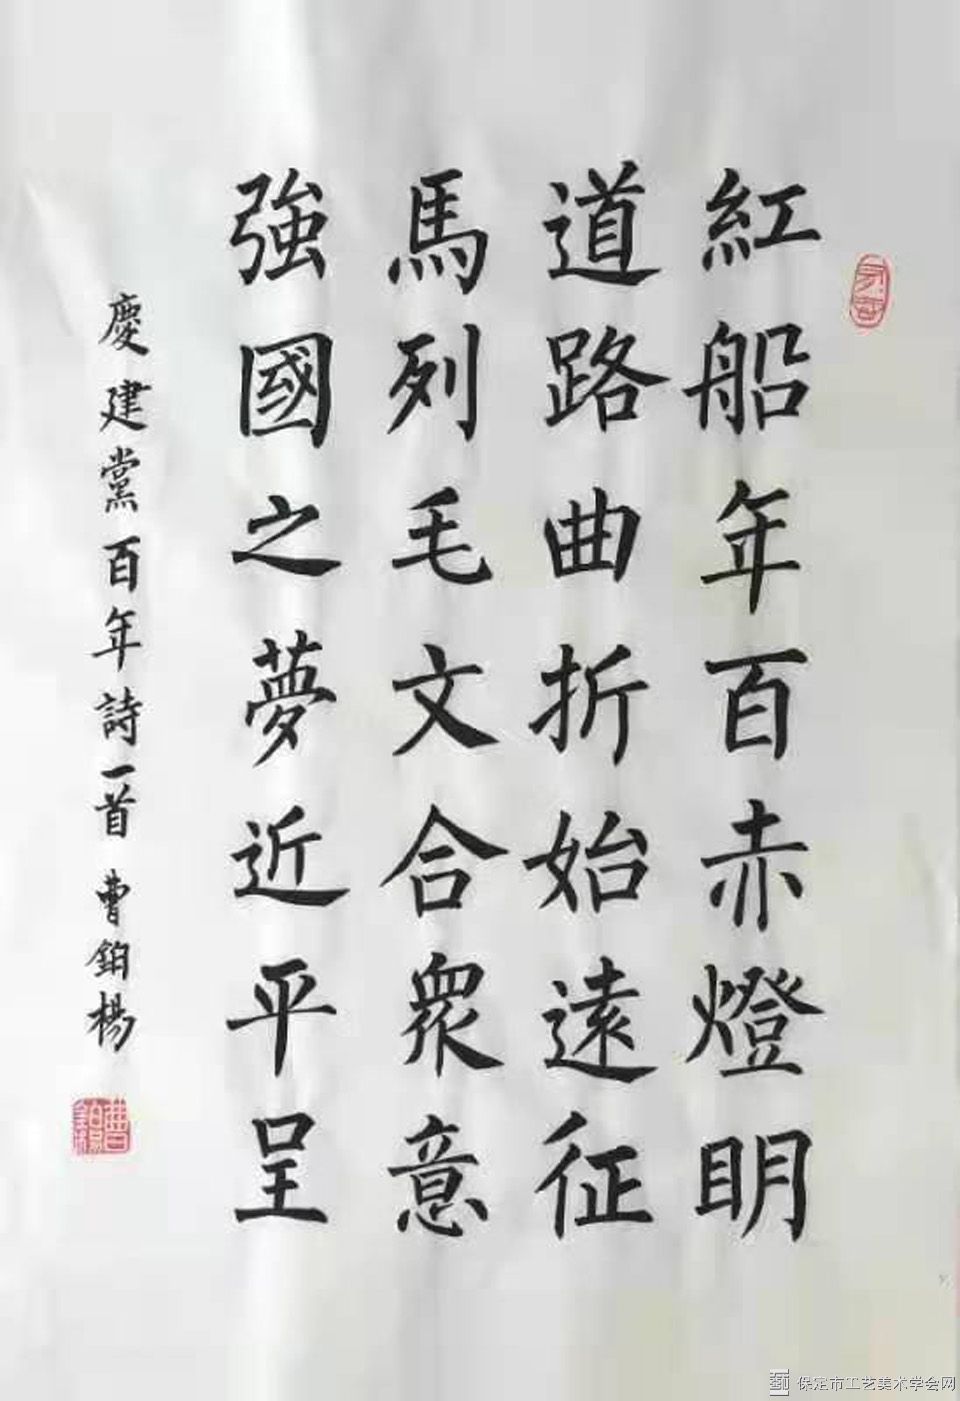 紅船年百赤燈明
道路曲折始遠征
馬列毛文合眾意
強國之夢近平呈
慶建黨百年詩一首 曹鉑楊
保定市工艺美术学会网